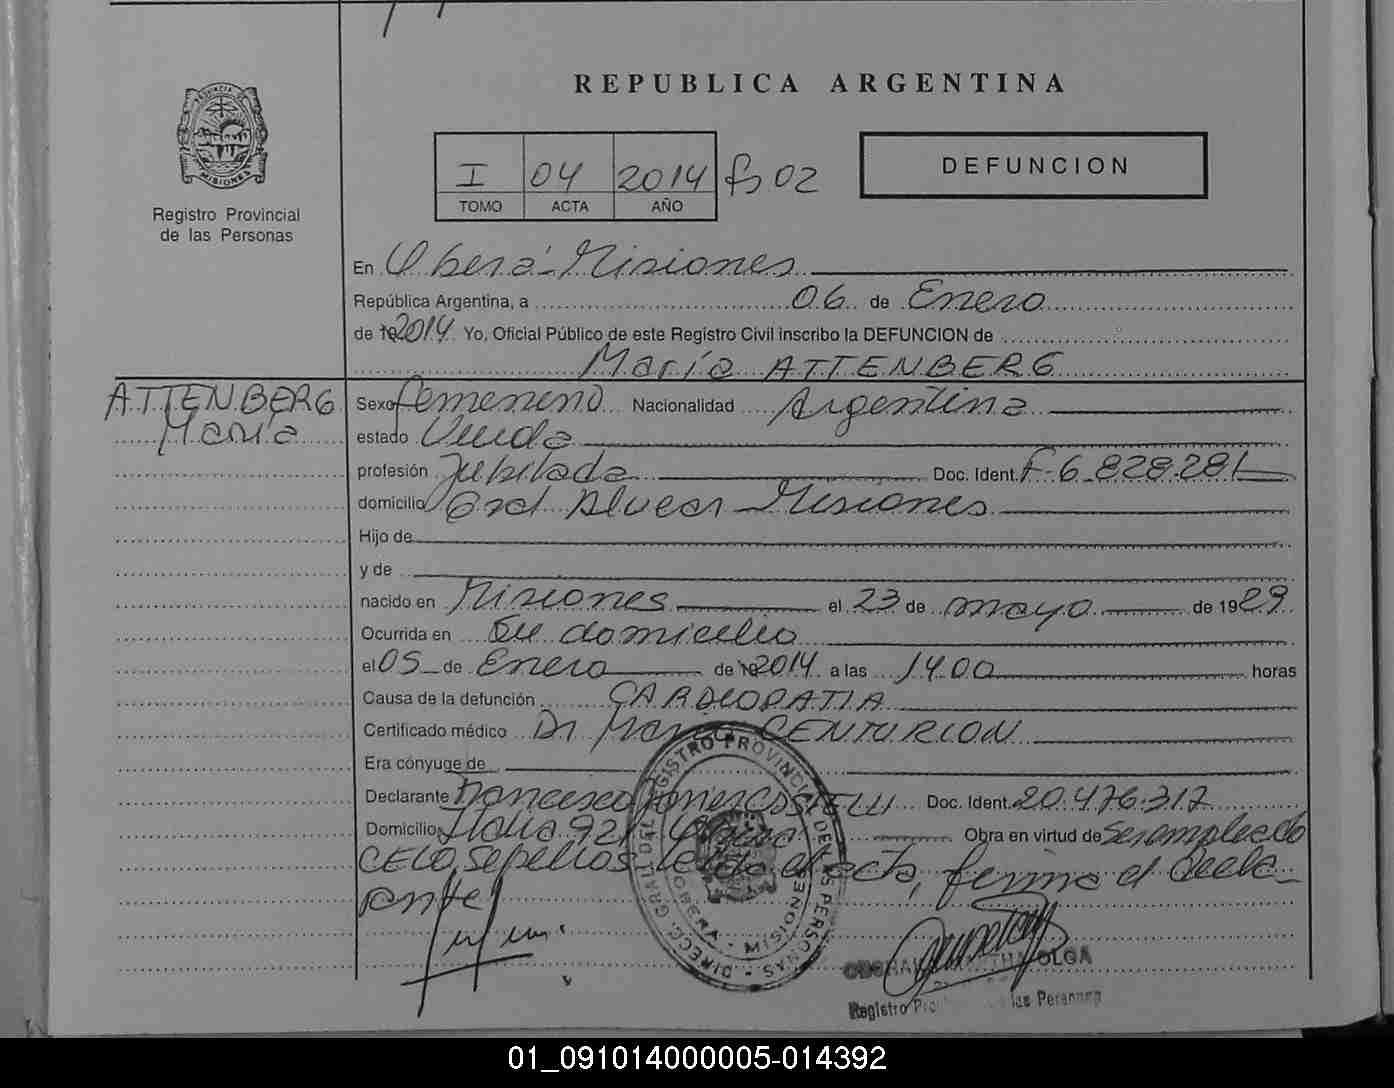 REPUBLICA ARGENTINA
PROVINCIA DE MISIONES
Registro Provincial
de las Personas
I 04 2014 fs 02
TOMO ACTA AÑO
DEFUNCION
En Oberá - Misiones
República Argentina, a 06 de Enero
de 2014 Yo, Oficial Público de este Registro Civil inscribo la DEFUNCION de
María ATTENBERG
ATTENBERG
María
Sexo femenino Nacionalidad Argentina
estado Viuda
profesión Jubilada Doc. Ident. F-6.828.281
domicilio Gral Alvear - Misiones
Hijo de
y de
nacido en Misiones el 23 de mayo de 1929
Ocurrida en Su domicilio
el 05 de Enero de 2014 a las 14.00 horas
Causa de la defunción CARDIOPATIA
Certificado médico Dr Mario CENTURION
Era cónyuge de
Declarante Francisco Doc. Ident. 20.476.317
Domicilio Italia 921 Oberá Obra en virtud de Ser empleado
CELO Sepelios leida el acta, firma el decla-
rante
DIRECC. GRAL. DEL REGISTRO PROVINCIAL DE LAS PERSONAS
OBERA - MISIONES
OLGA
Registro las Personas
01_091014000005-014392